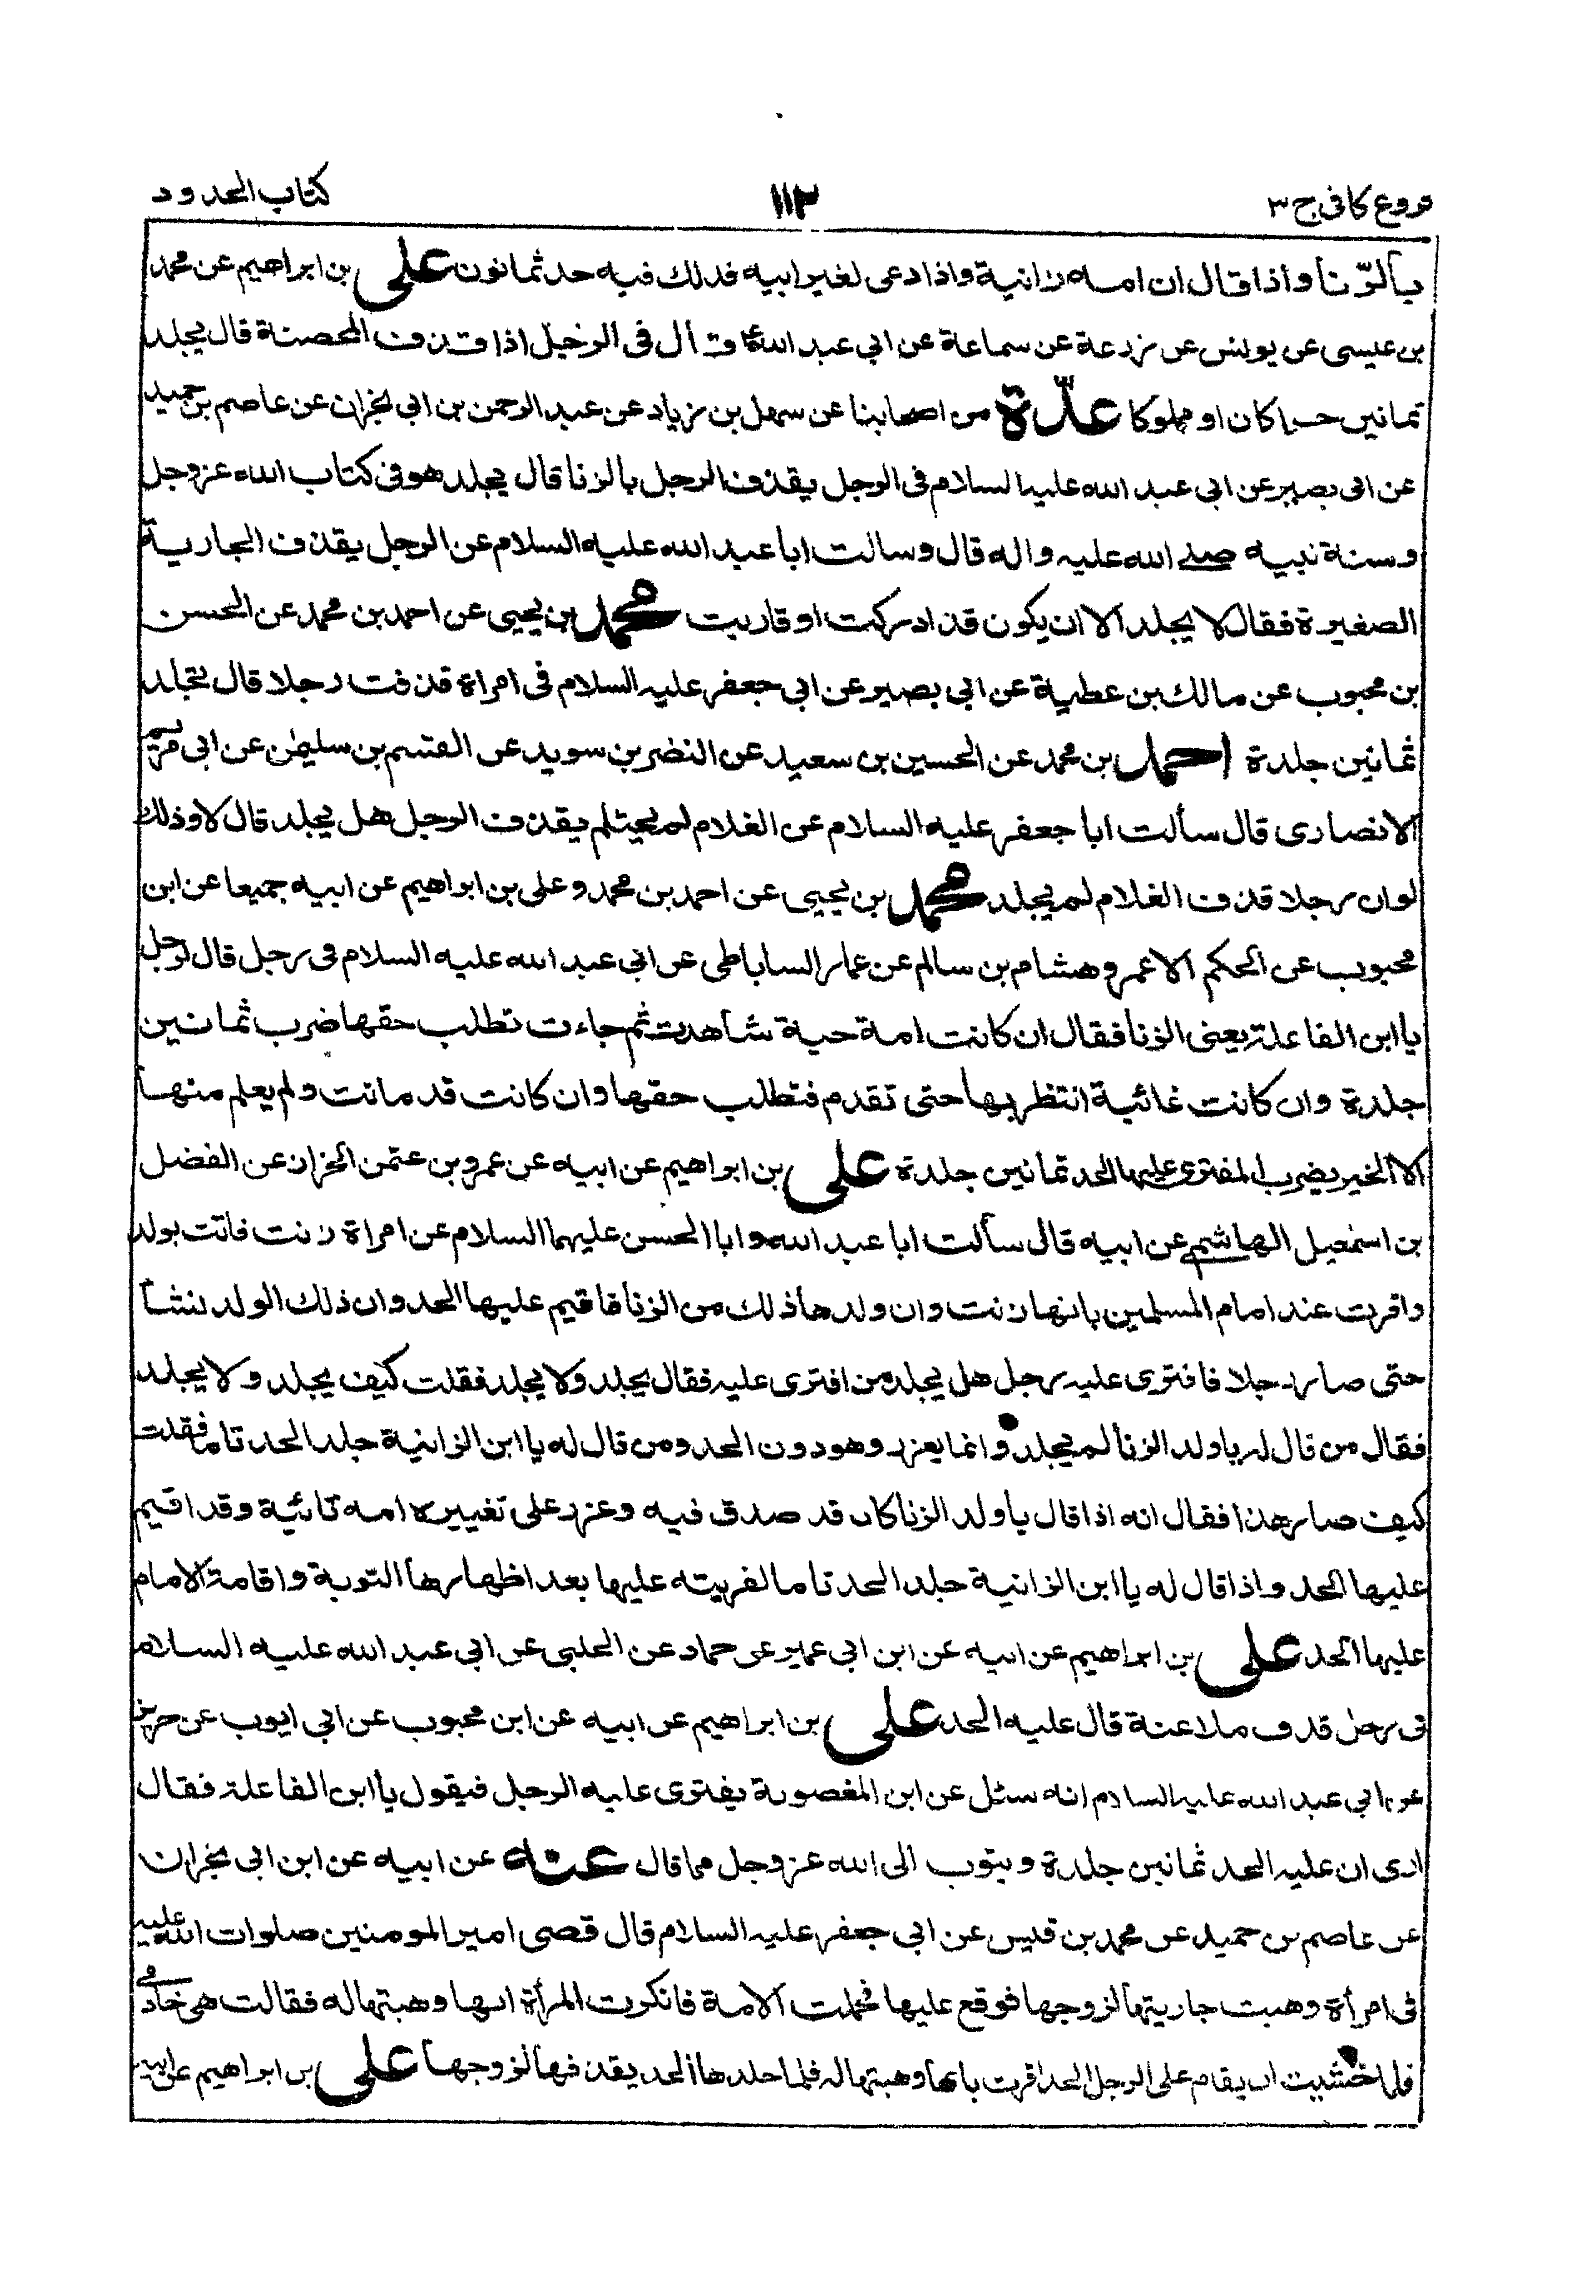 فروع كافى ج ٣
١١٢
كتاب الحدود
بالزنا واذا قال ان امه زانية واذا دعى لغير ابيه فذلك فيه حد ثمانون على بن ابراهيم عن محمد
بن عيسى عن يونس عن زرعة عن سماعة عن ابي عبد الله ع قال فى الرجل اذا قذف المحصنة قال يجلد
ثمانين حرا كان او مملوكا عدّة من اصحابنا عن سهل بن زياد عن عبد الرحمن بن ابي نجران عن عاصم بن حميد
عن ابى بصير عن ابي عبد الله عليه السلام فى الرجل يقذف الرجل بالزنا قال يجلد هو فى كتاب الله عز وجل
وسنة نبيه صلى الله عليه واله قال وسالت ابا عبد الله عليه السلام عن الرجل يقذف الجارية
الصغيرة فقال لا يجلد الا ان يكون قد ادركت او قاربت محمد بن يحيى عن احمد بن محمد عن الحسن
بن محبوب عن مالك بن عطية عن ابي بصير عن ابي جعفر عليه السلام فى امراة قذفت رجلا قال تجلد
ثمانين جلدة احمد بن محمد عن الحسين بن سعيد عن النضر بن سويد عن القسم بن سليمن عن ابى مريم
الانصارى قال سألت ابا جعفر عليه السلام عن الغلام لم يحتلم يقذف الرجل هل يجلد قال لا وذلك
لو ان رجلا قذف الغلام لم يجلد محمد بن يحيى عن احمد بن محمد وعلى بن ابراهيم عن ابيه جميعا عن ابن
محبوب عن الحكم الاعمى وهشام بن سالم عن عمار الساباطى عن ابي عبد الله عليه السلام فى رجل قال لرجل
يا ابن الفاعلة يعنى الزنا فقال ان كانت امة حية شاهدت ثم جاءت تطلب حقها ضرب ثمانين
جلدة وان كانت غائبة انتظر بها حتى تقدم فتطلب حقها وان كانت قد ماتت ولم يعلم منها
الا الخير يضرب المفترى عليها الحد ثمانين جلدة على بن ابراهيم عن ابيه عن عمرو بن عثمن الخزاز عن الفضل
بن اسمعيل الهاشمى عن ابيه قال سألت ابا عبد الله وابا الحسن عليهما السلام عن امراة زنت فاتت بولد
واقرت عند امام المسلمين بانها زنت وان ولدها ذلك من الزنا فاقيم عليها الحد وان ذلك الولد نشأ
حتى صار رجلا فافترى عليه رجل هل يجلد من افترى عليه فقال يجلد ولا يجلد فقلت كيف يجلد ولا يجلد
فقال من قال له يا ولد الزنا لم يجلد وانما يعزر وهو دون الحد ومن قال له يا ابن الزانية جلد الحد تاما فقلت
كيف صار هذا فقال انه اذا قال يا ولد الزنا كان قد صدق فيه وعزر على تغييره امه ثانية وقد اقيم
عليها الحد واذا قال له يا ابن الزانية جلد الحد تاما لفريته عليها بعد اظهارها التوبة واقامة الامام
عليها الحد على بن ابراهيم عن ابيه عن ابن ابي عمير عن حماد عن الحلبى عن ابي عبد الله عليه السلام
فى رجل قذف ملاعنة قال عليه الحد على بن ابراهيم عن ابيه عن ابن محبوب عن ابي ايوب عن حريز
عن ابي عبد الله عليه السلام انه سئل عن ابن المغصوبة يفترى عليه الرجل فيقول يا ابن الفاعلة فقال
ارى ان عليه الحد ثمانين جلدة ويتوب الى الله عز وجل مما قال عنه عن ابيه عن ابن ابي نجران
عن عاصم بن حميد عن محمد بن قيس عن ابي جعفر عليه السلام قال قضى امير المومنين صلوات الله عليه
فى امرأة وهبت جاريتها لزوجها فوقع عليها فحملت الامة فانكرت المرأة انها وهبتها له فقالت هى خادمى
فلما خشيت ان يقام على الرجل الحد اقرت بانها وهبتها له فلما جلدها الحد يقذفها لزوجها على بن ابراهيم عن ابيه